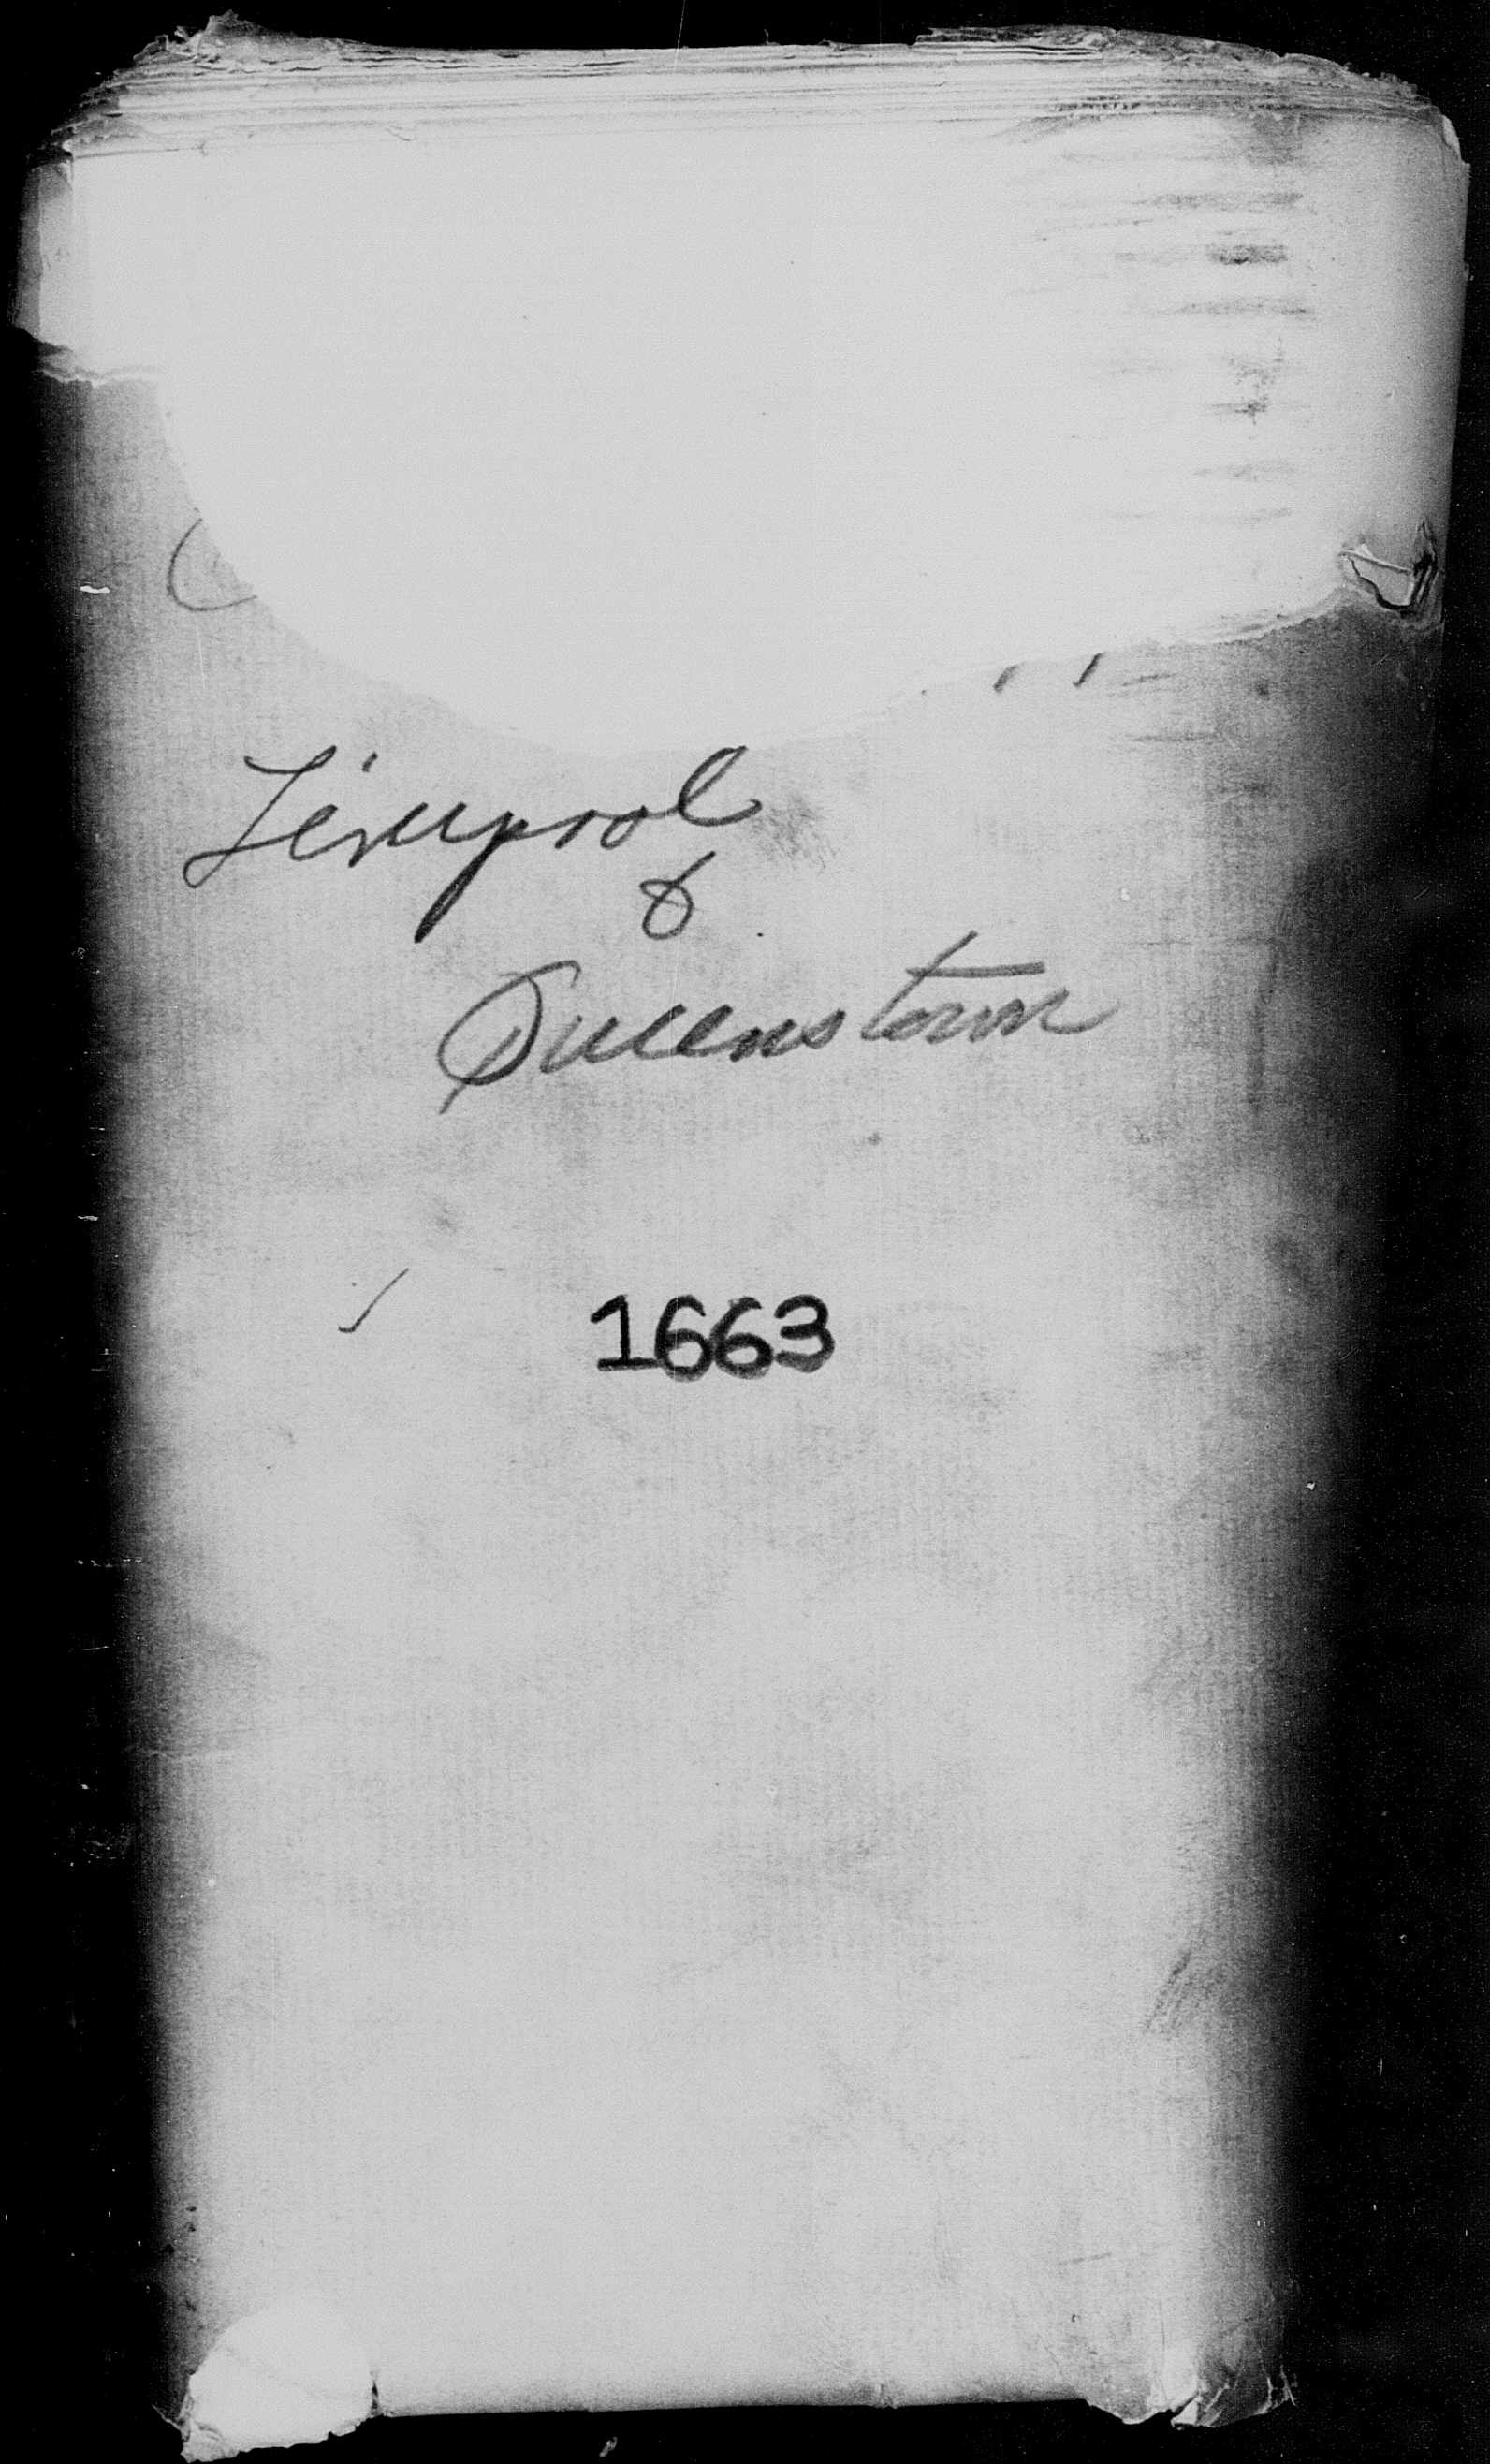 Liverpool
&
Queenstown
1663